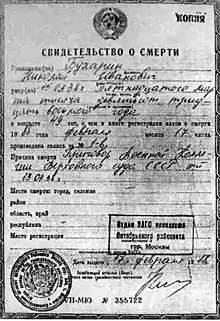 КОПИЯ
СВИДЕТЕЛЬСТВО О СМЕРТИ
Бухарин
Николай Иванович
15.03.38 г. Пятнадцатого мар
та тысяча девятьсот трид
цать восьмого года
в возрасте 49 лет, о чем в книге регистрации актов о смерти
19 88 года февраля месяца 17 числа
произведена запись №
Причина смерти Приговор Военной Колле
гии Верховного Суда СССР от
13.03.38 г.
Место смерти: город, селение
район
область, край
республика
Место регистрации
Отдел ЗАГС исполкома
Октябрьского райсовета
гор. Москвы
февраля
VII-МЮ № 355722